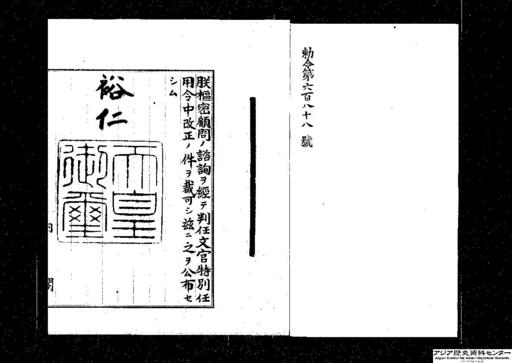 勅令第六百八十八號
朕樞密顧問ノ諮詢ヲ經テ判任文官特別任
用令中改正ノ件ヲ裁可シ茲ニ之ヲ公布セ
シム
裕仁
天皇
御璽
内閣
アジア歴史資料センター
Japan Center for Asian Historical Records